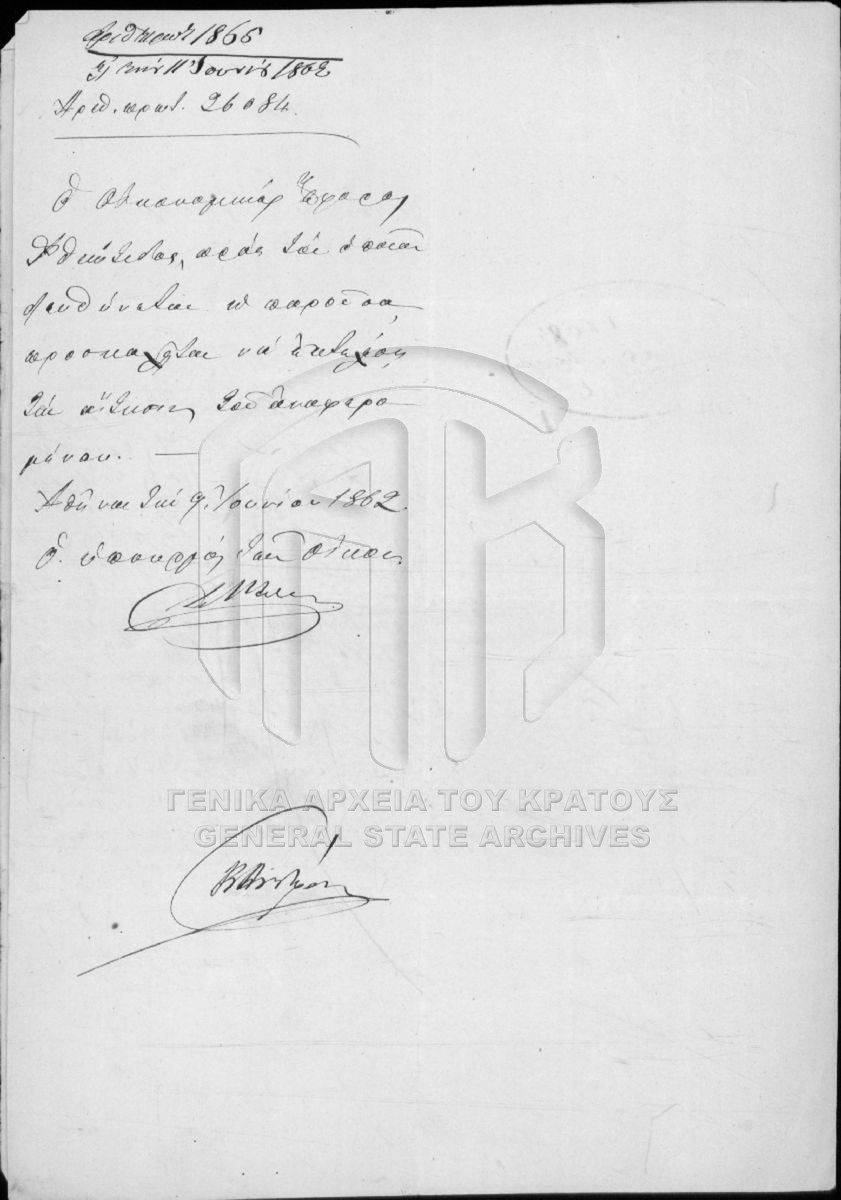 Ἀριθ πρωτ 1866
τὴν 11 Ἰουνίου 1862
Ἀριθ. πρωτ. 26084.
Ὁ Οἰκονομικός Ἔφορος
Φθιώτιδος, πρός τὸν ὁποῖον
ἀπευθύνεται ἡ παροῦσα,
προσκαλεῖται νά ἐκτελέσῃ
τήν αἴτησιν τοῦ ἀναφερο
μένου. —
Ἀθῆναι τὴν 9 Ἰουνίου 1862.
Ὁ ὑπουργός τῶν Οἰκον
ΓΕΝΙΚΑ ΑΡΧΕΙΑ ΤΟΥ ΚΡΑΤΟΥΣ
GENERAL STATE ARCHIVES